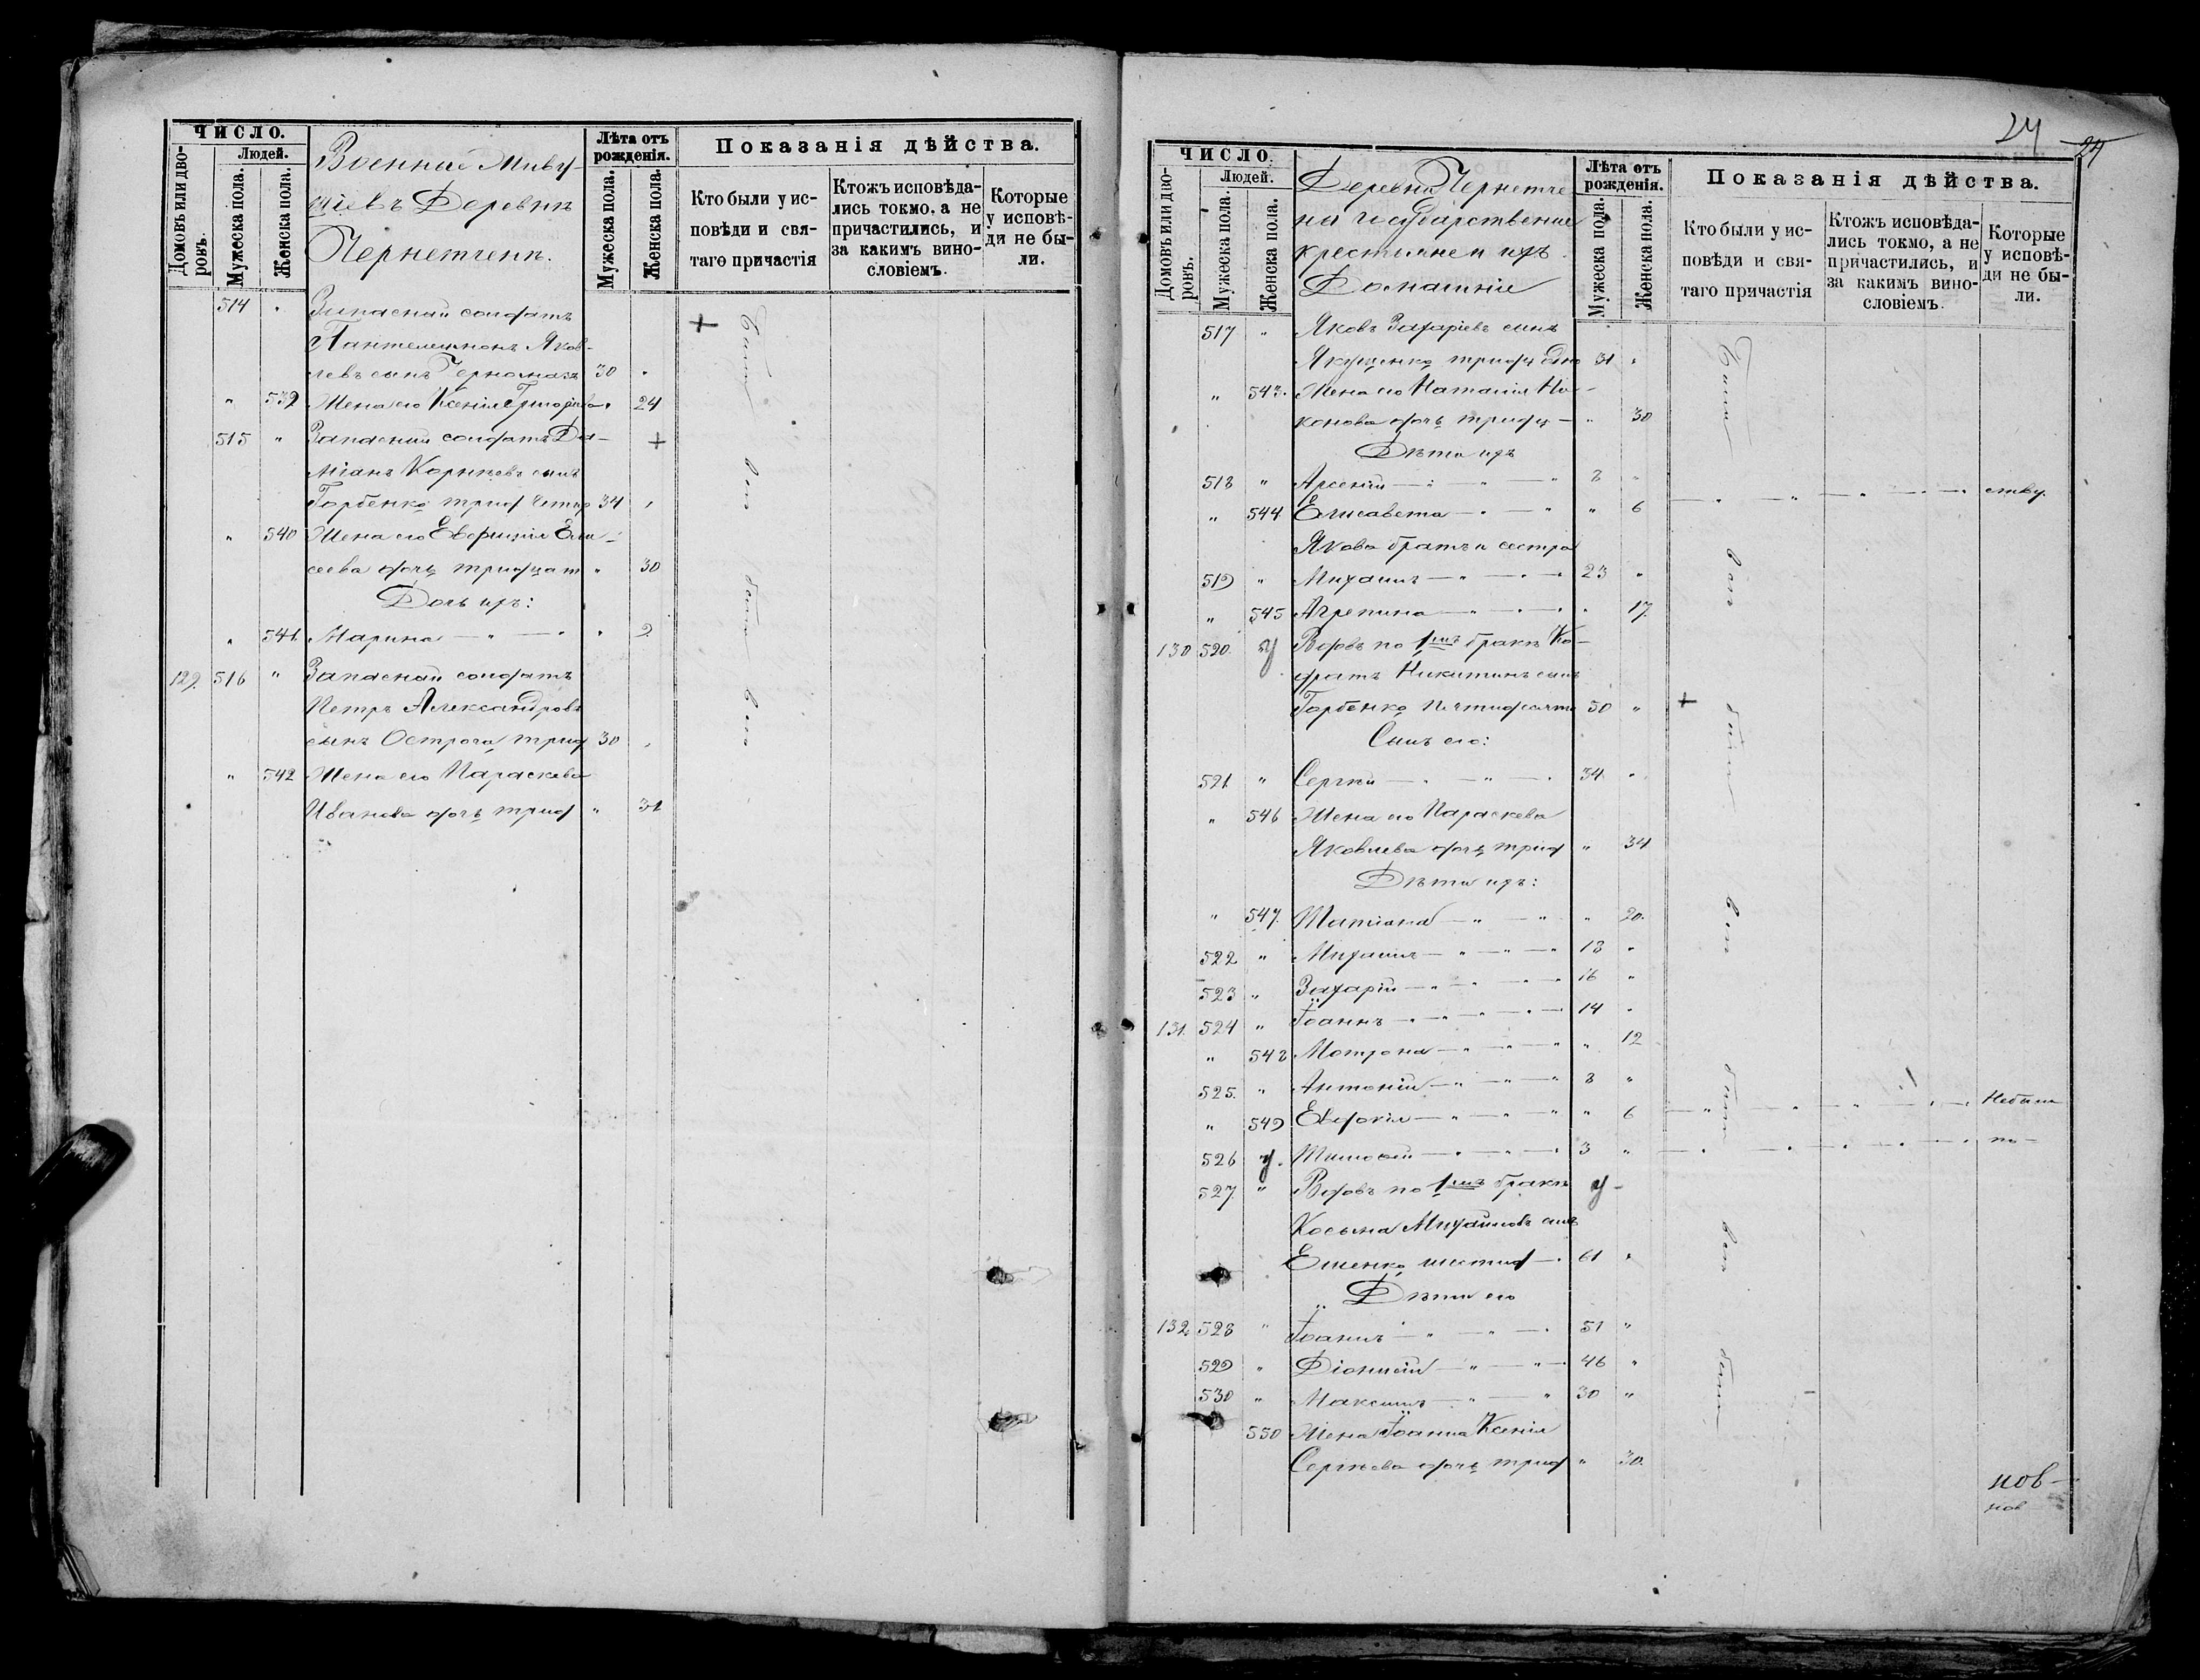 ЧИСЛО.
Домовъ или дво-
ровъ.
Людей.
Мужеска пола.
Женска пола.
Военные Живу-
щіе въ Деревнѣ
Чернетченѣ.
Лѣта отъ
рожденія.
Мужеска пола.
Женска пола.
Показанія дѣйства.
Кто были у ис-
повѣди и свя-
таго причастія
Ктожъ исповѣда-
лись токмо, а не
причастились, и
за какимъ вино-
словіемъ.
Которые
у исповѣ-
ди не бы-
ли.
514 " Запасный солдатъ
Пантелеимонъ Яков-
левъ сынъ 30 "
" 539 Жена его Ксенія Григорьева " 24
515 " Запасный солдатъ Да-
міанъ Корнѣевъ сынъ
Горбенко тридц четыр 34 "
" 540 Жена его Евфимія Ели-
сеева дочь тридцат " 30
Дочь ихъ:
" 541 Марина — " — " " 2
129. 516 " Запасный солдатъ
Петръ Александровъ
сынъ Острога тридц 30 "
" 542 Жена его Параскева
Иванова дочь тридц " 31
Были
вси
были
вси
24
24
ЧИСЛО.
Домовъ или дво-
ровъ.
Людей.
Мужеска пола.
Женска пола.
Деревня Чернетче
на государственные
крестьяне и ихъ
Домашніе
Лѣта отъ
рожденія.
Мужеска пола.
Женска пола.
Показанія дѣйства.
Кто были у ис-
повѣди и свя-
таго причастія
Ктожъ исповѣда-
лись токмо, а не
причастились, и
за какимъ вино-
словіемъ.
Которые
у исповѣ-
ди не бы-
ли.
517 " Яковъ Захаріевъ сынъ
Якущенко тридц одно 31 "
" 543. Жена его Наталія Ни-
конова дочь тридц — " 30
Дѣти ихъ
518 " Арсеній — " — " 8 "
" 544 Елисавета — " — " " 6
Якова братъ и сестра
519 " Михаилъ — " — " 23 "
" 545 Агрепина — " — " " 17
130 520. у Вдовъ по 1мъ бракѣ Ко-
дратъ Никитинъ сынъ
Горбенко пятидесяти 50 "
Сынъ его:
521 " Сергій — " — " 34 "
" 546 Жена его Параскева
Яковлева дочь тридц " 34
Дѣти ихъ:
" 547. Татіана — " — " " 20.
522 " Михаилъ — " — " 18 "
523 " Захарій — " — " 16 "
131. 524 " Іоаннъ — " — " 14 "
" 548 Мотрона — " — " " 12
525. " Антоній — " — " 8 "
" 549 Евдокія — " — " " 6 Небыли
526 у. Тимофей — " — " 3 " по —
527. " Вдовъ по 1мъ бракѣ у —
Косьма Михайловъ сынъ
Еменко шестид — 61 "
Дѣти его
132. 528 " Іоаннъ — " — " 51 "
529 " Діонисій — " — " 46 "
530 " Максимъ — " — " 30 "
550 Жена Іоанна Ксенія
Сергѣева дочь тридц " 30.
Были
вси
были
вси
были
вси
были
нов —
нов